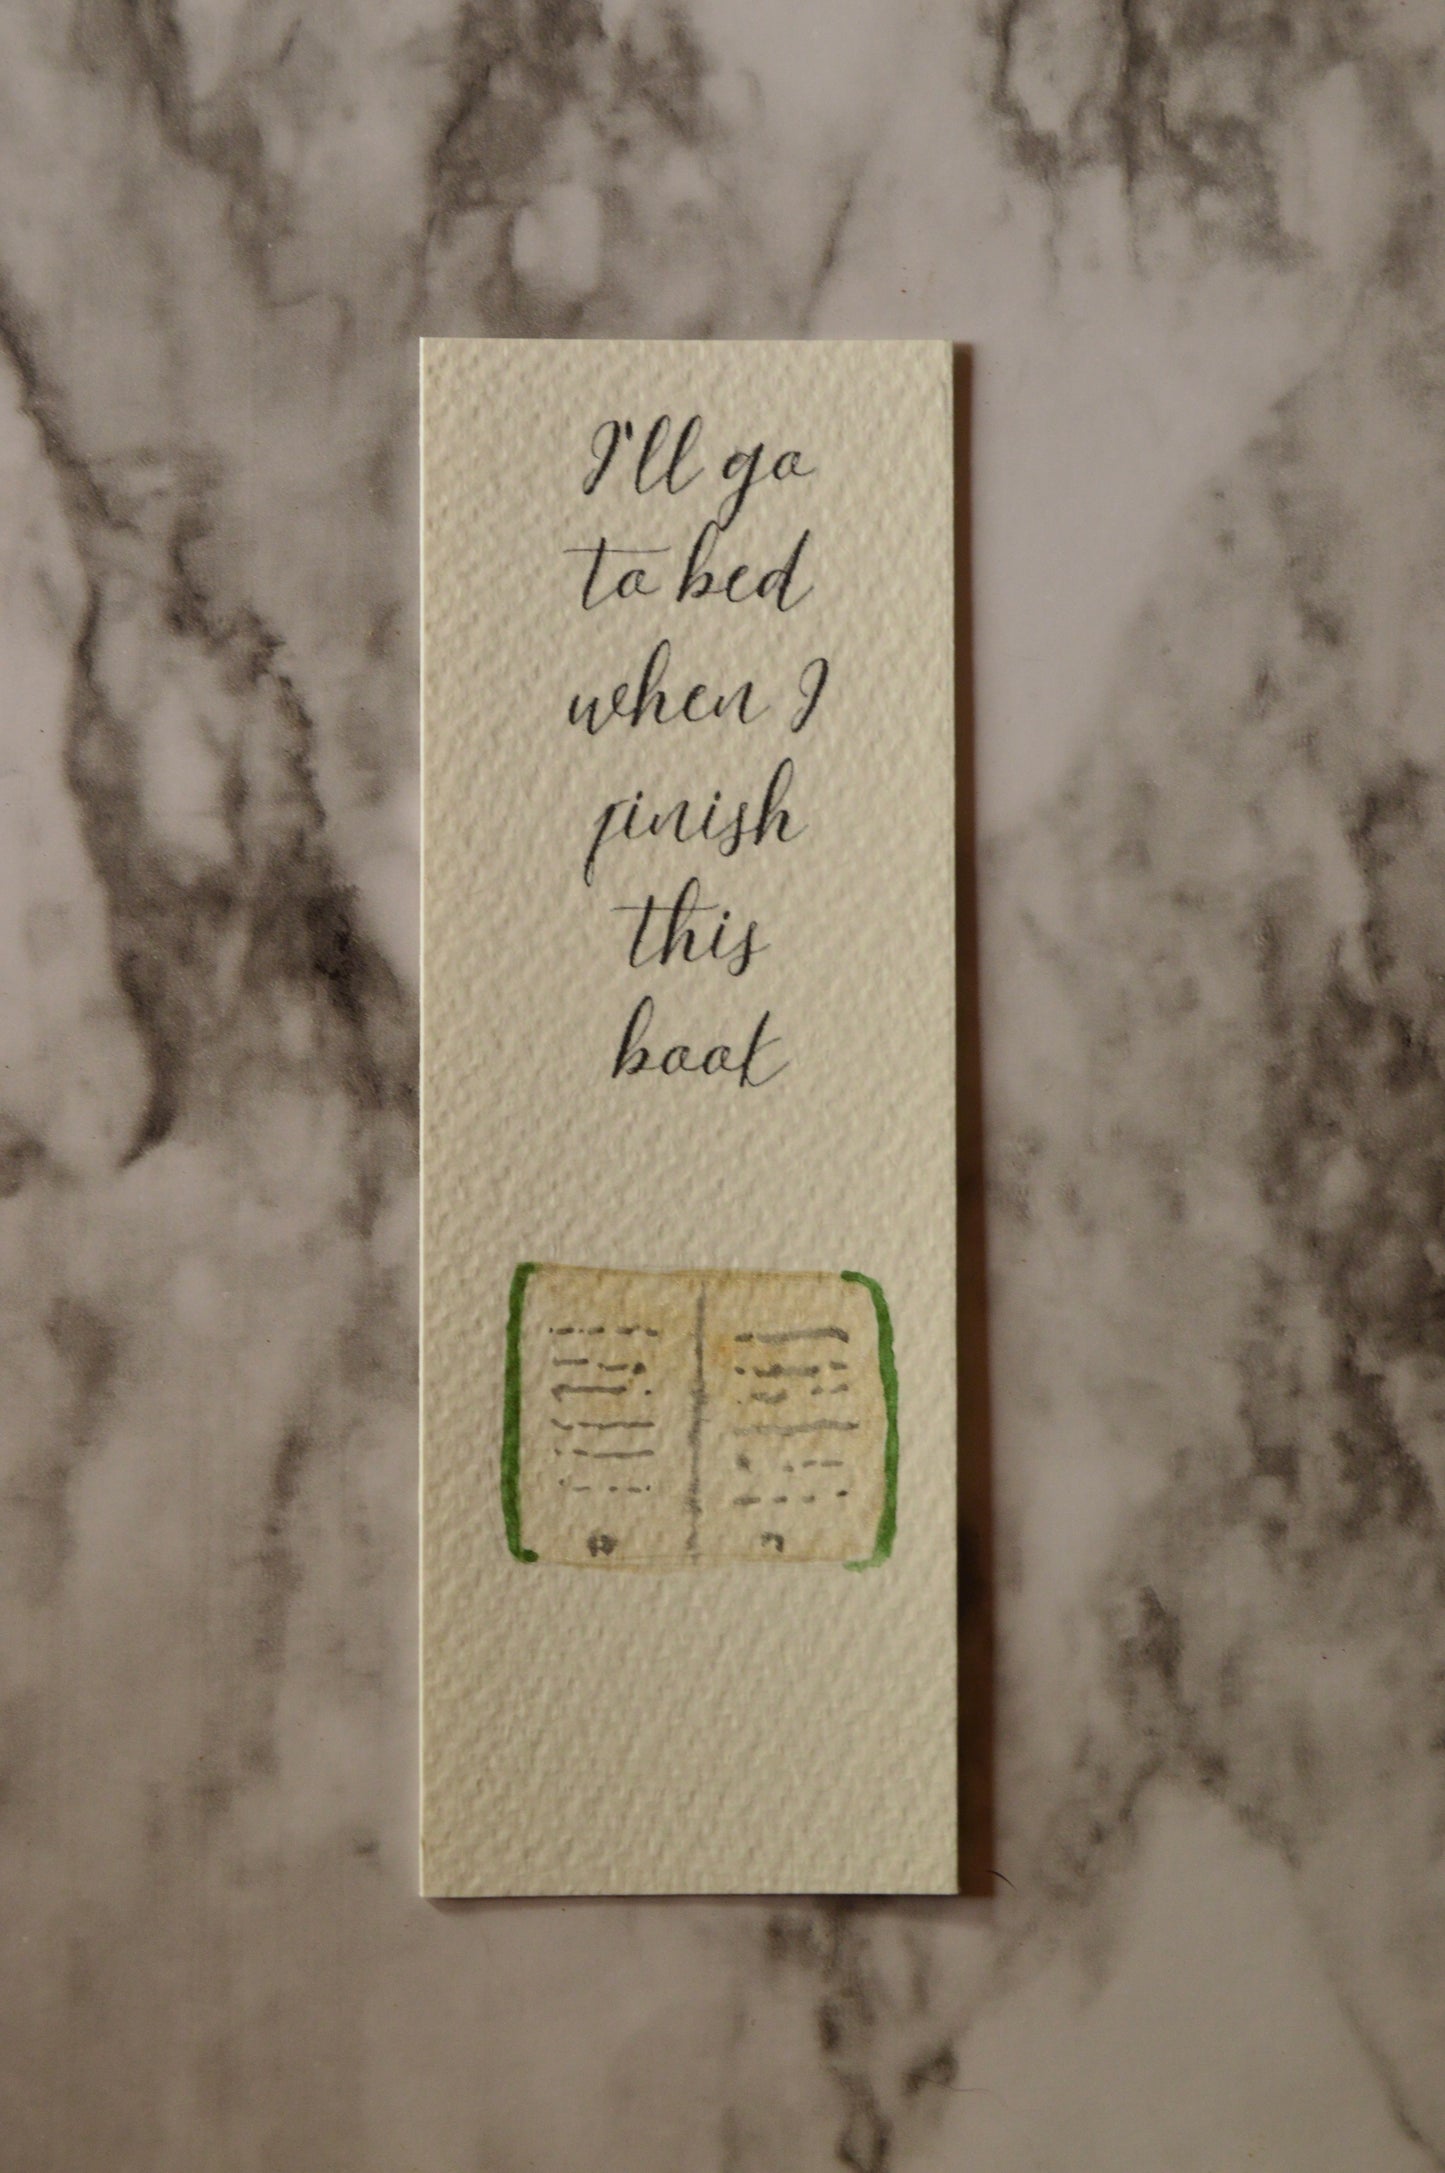 I'll go
to bed
when I
finish
this
book